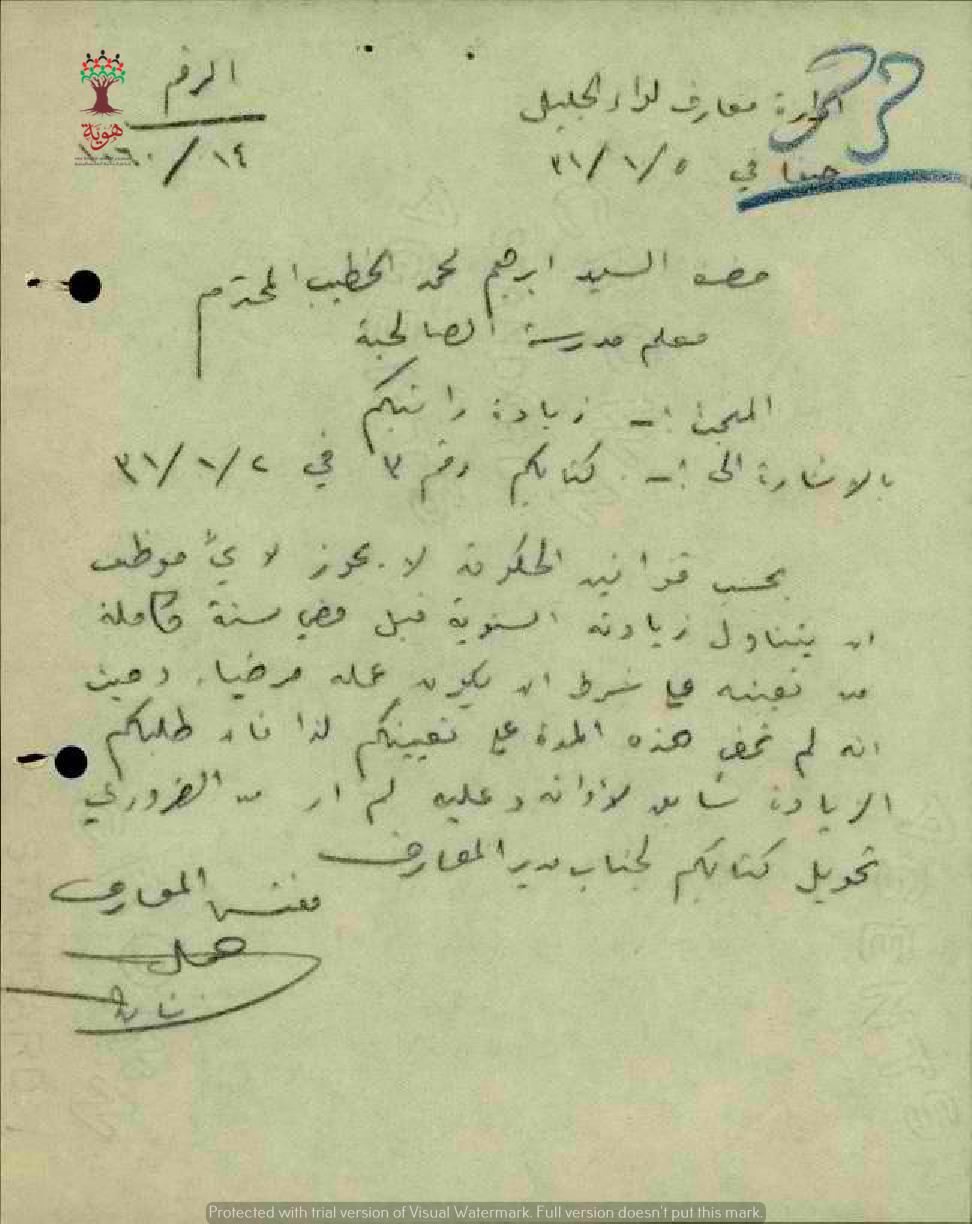 الرقم
١٤/١٠٦٠
ادارة معارف لواء الجليل
حيفا في ٥/١/٣١
هوية
33
حضرة السيد ابرهيم محمد الخطيب المحترم
معلم مدرسة الصالحية
المبحث :- زيادة راتبكم
بالاشارة الى :- كتابكم رقم ٣ في ٢/١/٣١
بحسب قوانين الحكومة لا يجوز لايّ موظف
ان يتناول زيادته السنوية قبل مضي سنة كاملة
من تعيينه على شرط ان يكون عمله مرضيا. وحيث
انه لم تمض هذه المدة على تعيينكم لذا فان طلبكم
الزيادة سابق لأوانه وعليه لم ار من الضروري
تحويل كتابكم لجناب مدير المعارف
مفتش المعارف
Protected with trial version of Visual Watermark. Full version doesn't put this mark.